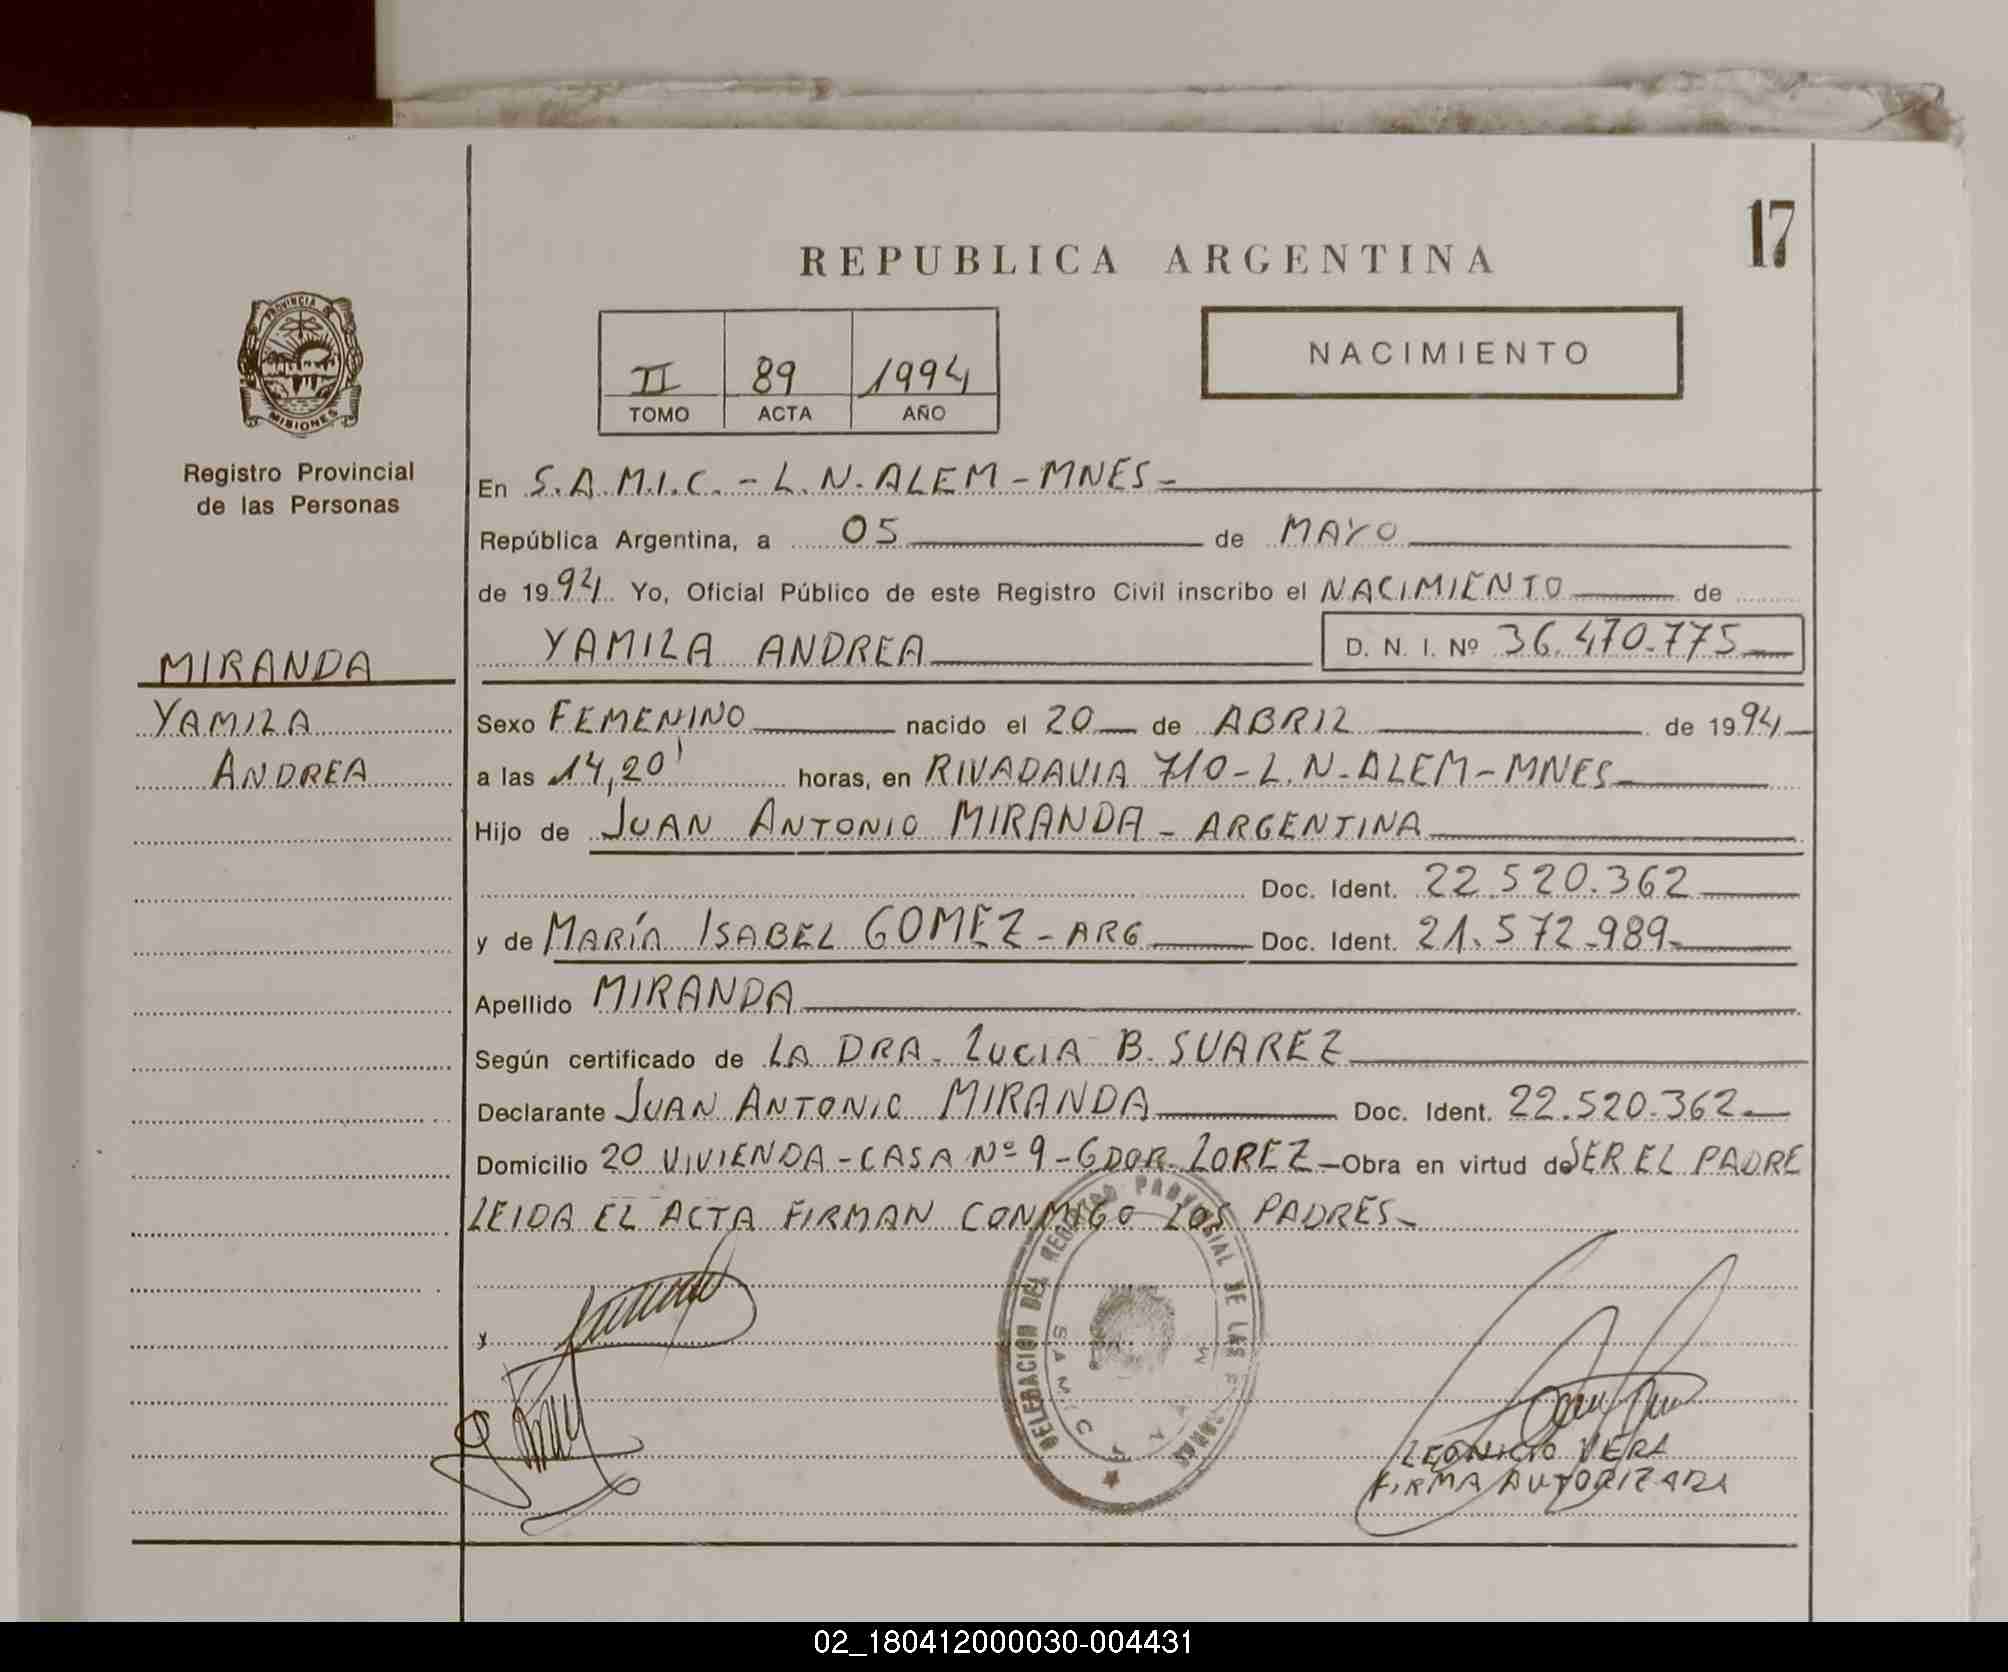 17
REPUBLICA ARGENTINA
PROVINCIA DE
MISIONES
Registro Provincial
de las Personas
II 89 1994
TOMO ACTA AÑO
NACIMIENTO
En S.A.M.I.C. - L.N. ALEM - MNES -
República Argentina, a 05 de MAYO
de 1994 Yo, Oficial Público de este Registro Civil inscribo el NACIMIENTO de
YAMILA ANDREA D. N. I. Nº 36.470.775
MIRANDA
YAMILA
ANDREA
Sexo FEMENINO nacido el 20 de ABRIL de 1994
a las 14,20' horas, en RIVADAVIA 710 - L.N. ALEM - MNES
Hijo de JUAN ANTONIO MIRANDA - ARGENTINA
Doc. Ident. 22.520.362
y de MARÍA ISABEL GOMEZ - ARG Doc. Ident. 21.572.989
Apellido MIRANDA
Según certificado de LA DRA. LUCIA B. SUAREZ
Declarante JUAN ANTONIO MIRANDA Doc. Ident. 22.520.362
Domicilio 20 VIVIENDA - CASA Nº 9 - GDOR. LOPEZ - Obra en virtud de SER EL PADRE
LEIDA EL ACTA FIRMAN CONMIGO LOS PADRES -
DELEGACION DEL REGISTRO PROVINCIAL DE LAS
y
LEONICIO VERA
FIRMA AUTORIZADA
02_180412000030-004431